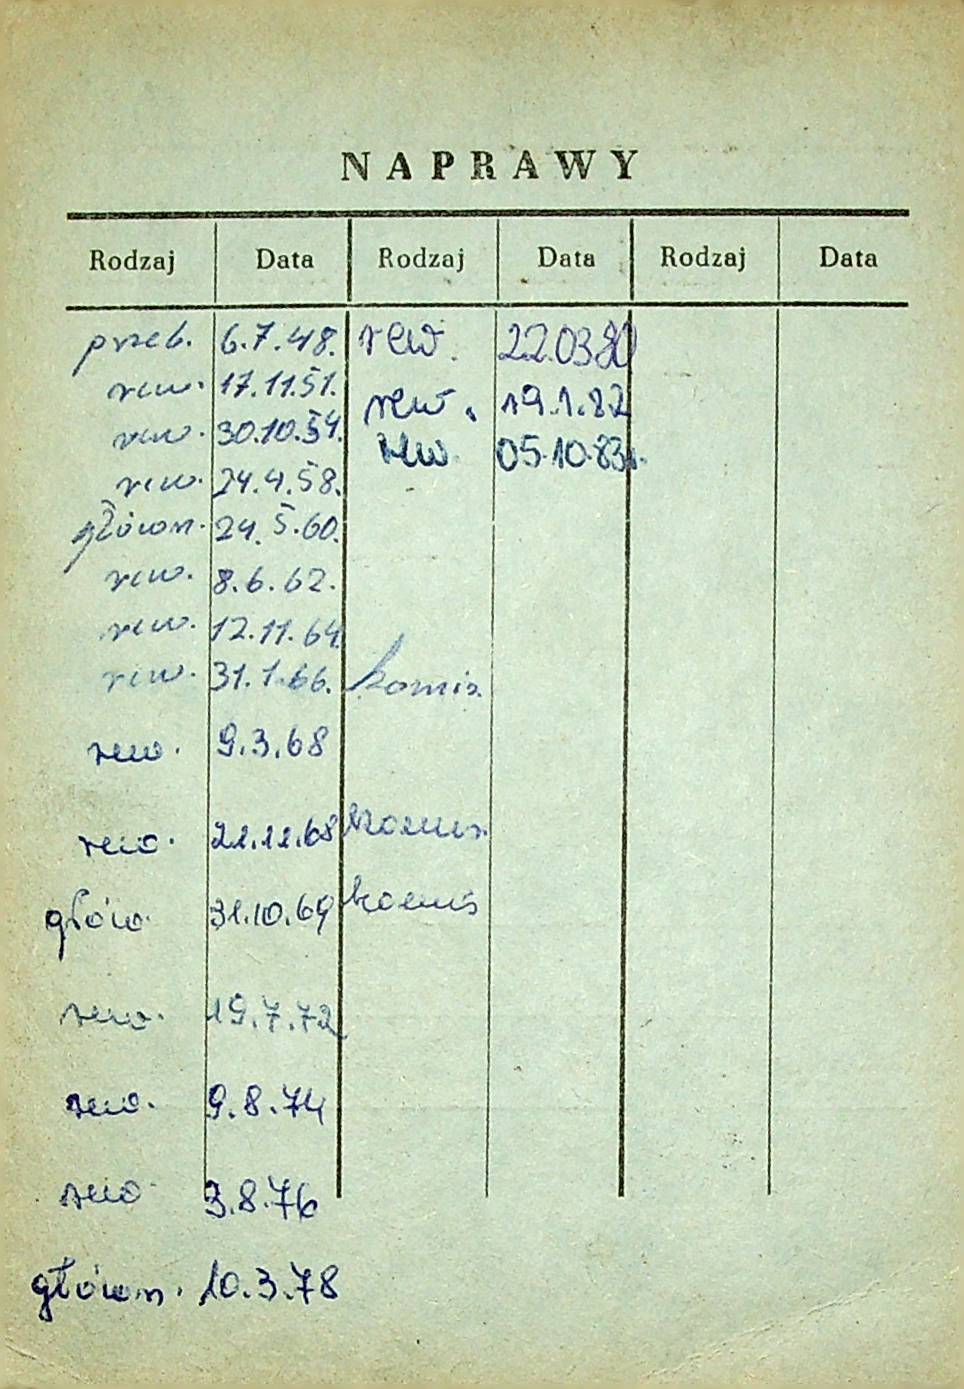 NAPRAWY
Rodzaj Data Rodzaj Data Rodzaj Data
przeb. 6.7.48. rew. 22.03 80
rew. 17.11.51. rew. 19.1.82
rew. 30.10.54. rew 05.10.83r.
rew. 24.4.58.
główn. 24.5.60.
rew. 8.6.62.
rew. 12.11.64
rew. 31.1.66. komis.
rew. 9.3.68
rew. 21.11.68 komis.
głów. 31.10.69 komis
rew. 19.7.72
rew. 9.8.74
rew 3.8.76
główn. 10.3.78